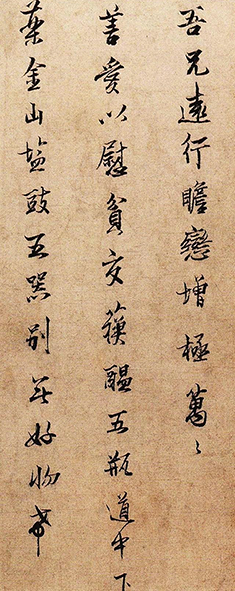 吾兄遠行瞻戀增極萬〻
善愛以慰貧交蘓醖五瓶道中下
藥金山塩豉五器別無好物